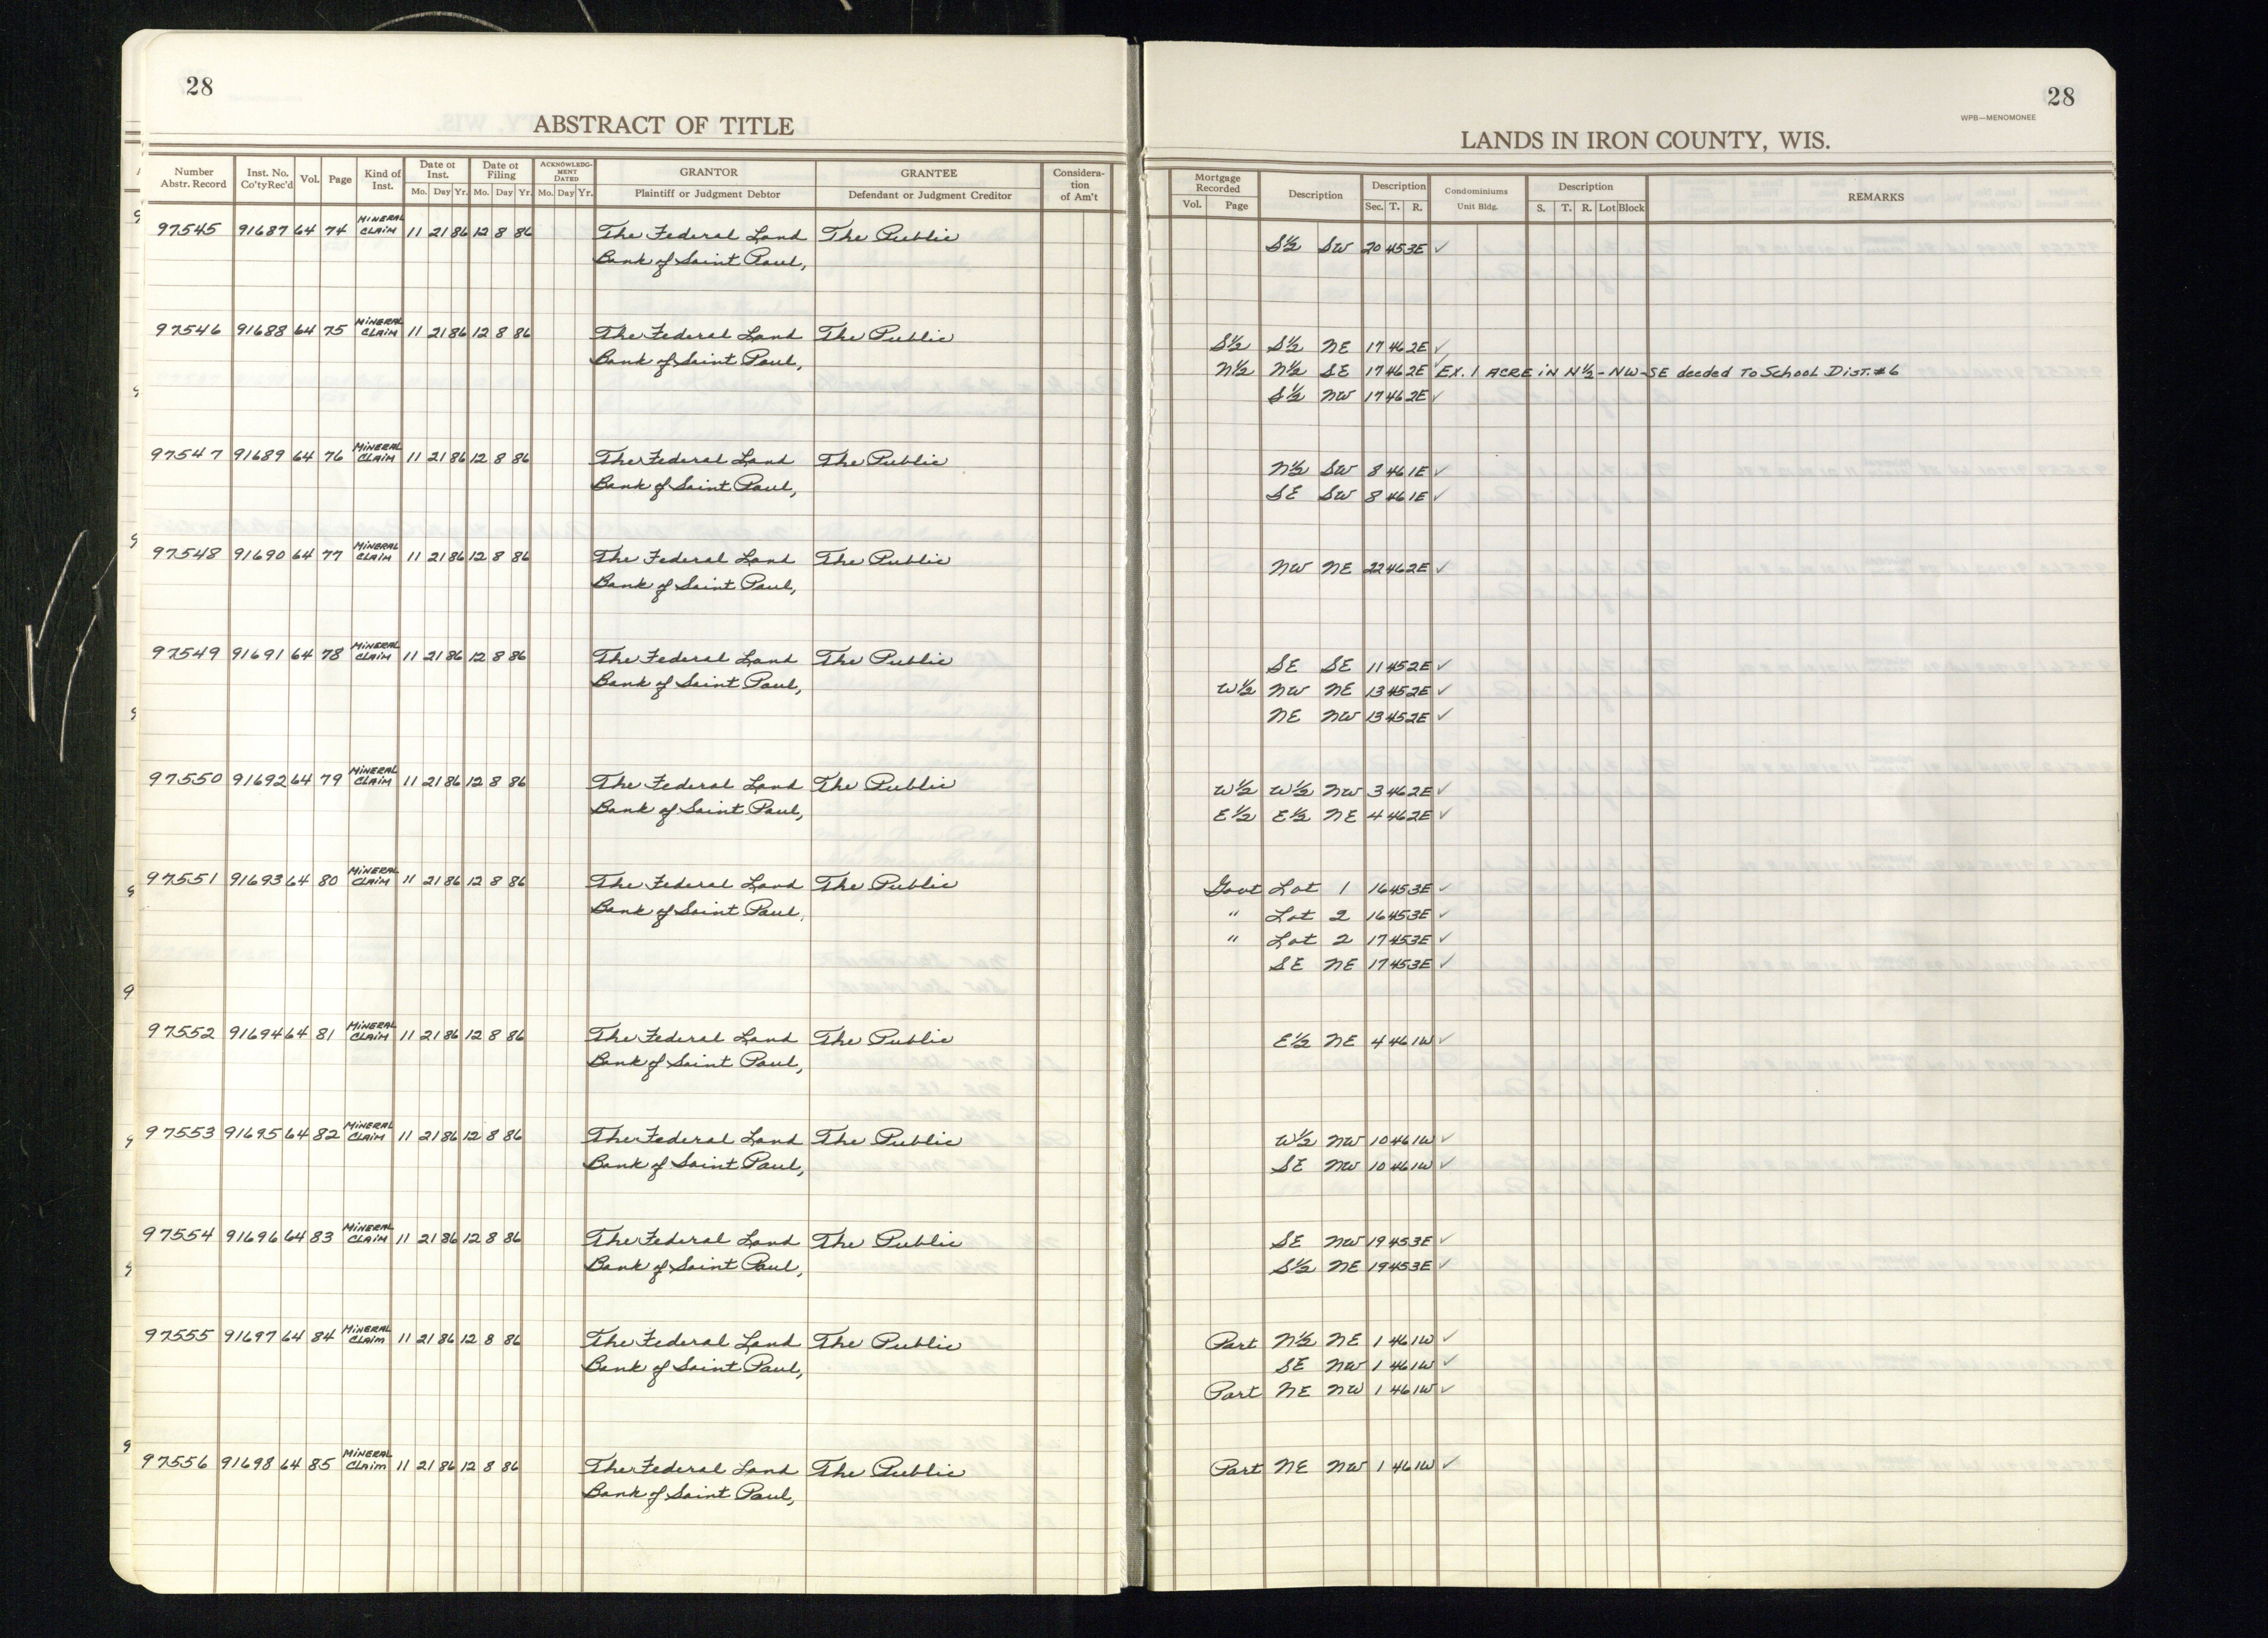 28
ABSTRACT OF TITLE
Number Abstr. Record Inst. No. Co'ty Rec'd Vol. Page Kind of Inst. Date of Inst. Mo. Day Yr. Date of Filing Mo. Day Yr. ACKNOWLEDGMENT DATED Mo. Day Yr. GRANTOR Plaintiff or Judgment Debtor GRANTEE Defendant or Judgment Creditor Consideration of Am't
97545 91687 64 74 MINERAL CLAIM 11 21 86 12 8 86 The Federal Land The Public
Bank of Saint Paul,
97546 91688 64 75 MINERAL CLAIM 11 21 86 12 8 86 The Federal Land The Public
Bank of Saint Paul,
97547 91689 64 76 MINERAL CLAIM 11 21 86 12 8 86 The Federal Land The Public
Bank of Saint Paul,
97548 91690 64 77 MINERAL CLAIM 11 21 86 12 8 86 The Federal Land The Public
Bank of Saint Paul,
97549 91691 64 78 MINERAL CLAIM 11 21 86 12 8 86 The Federal Land The Public
Bank of Saint Paul,
97550 91692 64 79 MINERAL CLAIM 11 21 86 12 8 86 The Federal Land The Public
Bank of Saint Paul,
97551 91693 64 80 MINERAL CLAIM 11 21 86 12 8 86 The Federal Land The Public
Bank of Saint Paul,
97552 91694 64 81 MINERAL CLAIM 11 21 86 12 8 86 The Federal Land The Public
Bank of Saint Paul,
97553 91695 64 82 MINERAL CLAIM 11 21 86 12 8 86 The Federal Land The Public
Bank of Saint Paul,
97554 91696 64 83 MINERAL CLAIM 11 21 86 12 8 86 The Federal Land The Public
Bank of Saint Paul,
97555 91697 64 84 MINERAL CLAIM 11 21 86 12 8 86 The Federal Land The Public
Bank of Saint Paul,
97556 91698 64 85 MINERAL CLAIM 11 21 86 12 8 86 The Federal Land The Public
Bank of Saint Paul,
28
WPB—MENOMONEE
LANDS IN IRON COUNTY, WIS.
Mortgage Recorded Vol. Page Description Description Sec. T. R. Condominiums Unit Bldg. Description S. T. R. Lot Block REMARKS
S½ SW 20 45 3E ✓
S½ S½ NE 17 46 2E ✓
N½ N½ SE 17 46 2E ✓ EX. 1 ACRE iN N½-NW-SE deeded To School Dist. #6
S½ NW 17 46 2E ✓
N½ SW 8 46 1E ✓
SE SW 8 46 1E ✓
NW NE 22 46 2E ✓
SE SE 11 45 2E ✓
W½ NW NE 13 45 2E ✓
NE NW 13 45 2E ✓
W½ W½ NW 3 46 2E ✓
E½ E½ NE 4 46 2E ✓
Govt Lot 1 16 45 3E ✓
" Lot 2 16 45 3E ✓
" Lot 2 17 45 3E ✓
SE NE 17 45 3E ✓
E½ NE 4 46 1W ✓
W½ NW 10 46 1W ✓
SE NW 10 46 1W ✓
SE NW 19 45 3E ✓
S½ NE 19 45 3E ✓
Part N½ NE 1 46 1W ✓
SE NW 1 46 1W ✓
Part NE NW 1 46 1W ✓
Part NE NW 1 46 1W ✓